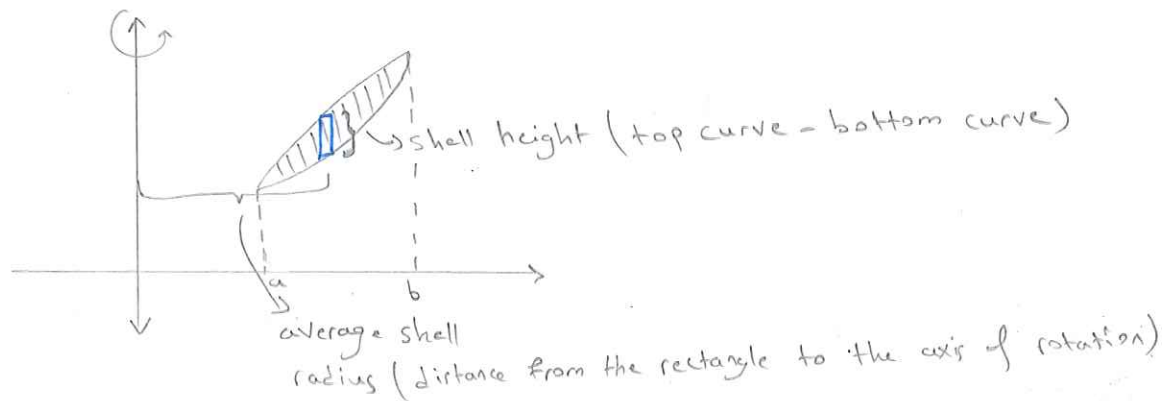 shell height (top curve - bottom curve)
a
b
average shell
radius (distance from the rectangle to the axis of rotation)